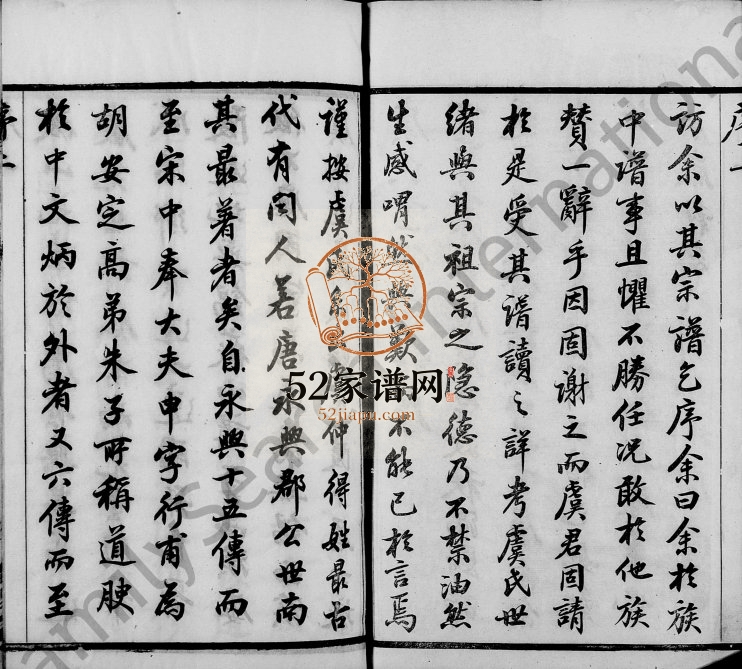 序一
訪余以其宗譜乞序余曰余於族
中譜事且懼不勝任况敢於他族
贊一辭乎因固謝之而虞君固請
於是受其譜讀之詳考虞氏世
緒與其祖宗之隱德乃不禁油然
生感喟然興歎不能已於言焉
謹按虞仲得姓最古
代有聞人若唐永興郡公世南
其最著者矣自永興十五傳而
至宋中奉大夫申字行甫為
胡安定高弟朱子所稱道腴
於中文炳於外者又六傳而至
序二
52家谱网
52jiapu.com
FamilySearch International